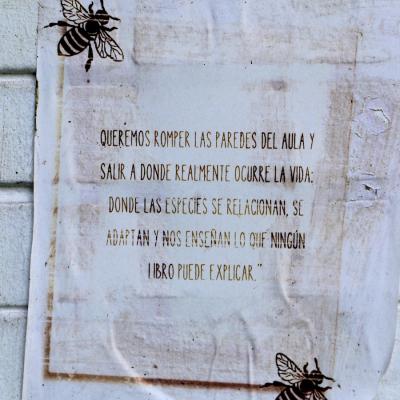 QUEREMOS ROMPER LAS PAREDES DEL AULA Y
SALIR A DONDE REALMENTE OCURRE LA VIDA:
DONDE LAS ESPECIES SE RELACIONAN, SE
ADAPTAN Y NOS ENSEÑAN LO QUE NINGÚN
LIBRO PUEDE EXPLICAR."